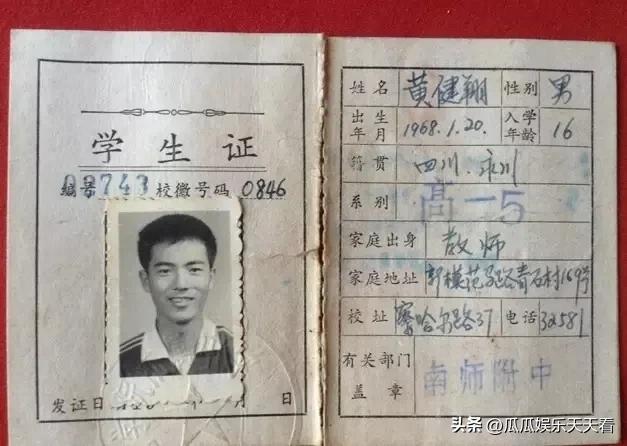 学生证
编号 00743 校徽号码 0846
发证日 月 日
姓名 黄健翔 性别 男
出生年月 1968.1.20. 入学年龄 16
籍贯 四川.永川
系别 高一5
家庭出身 教师
家庭地址 路青石村169号
校址 察哈尔路37 电话 32581
有关部门盖章 南师附中
头条 @瓜瓜娱乐天天看